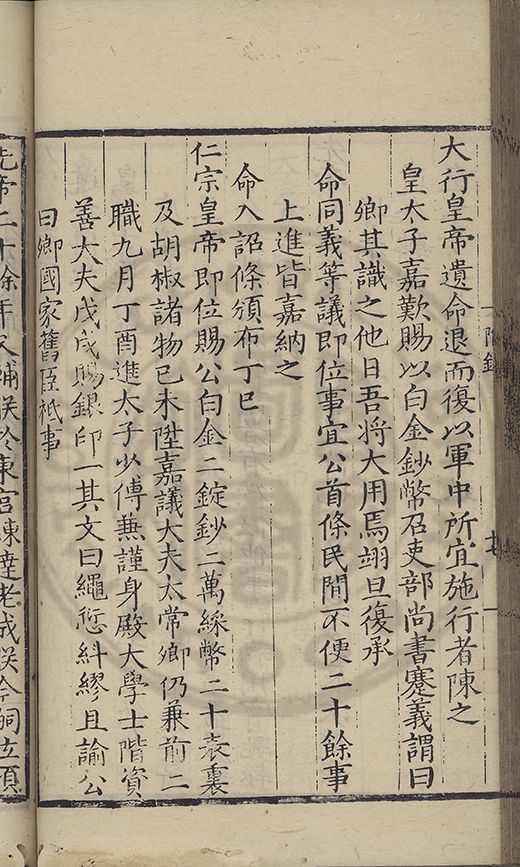 大行皇帝遺命退而復以軍中所宜施行者陳之
皇太子嘉歎賜以白金鈔幣召吏部尚書蹇義謂曰
卿其識之他日吾將大用焉翊旦復承
命同義等議即位事宜公首條民間不便二十餘事
上進皆嘉納之
命入詔條頒布丁巳
仁宗皇帝即位賜公白金二錠鈔二萬綵幣二十表裏
及胡椒諸物已未陞嘉議大夫太常卿仍兼前二
職九月丁酉進太子少傅兼謹身殿大學士階資
善大夫戊戌賜銀印一其文曰繩愆糾繆且諭公
曰卿國家舊臣祗事
先帝二十餘年又輔朕於東宮練達老成朕今嗣位須